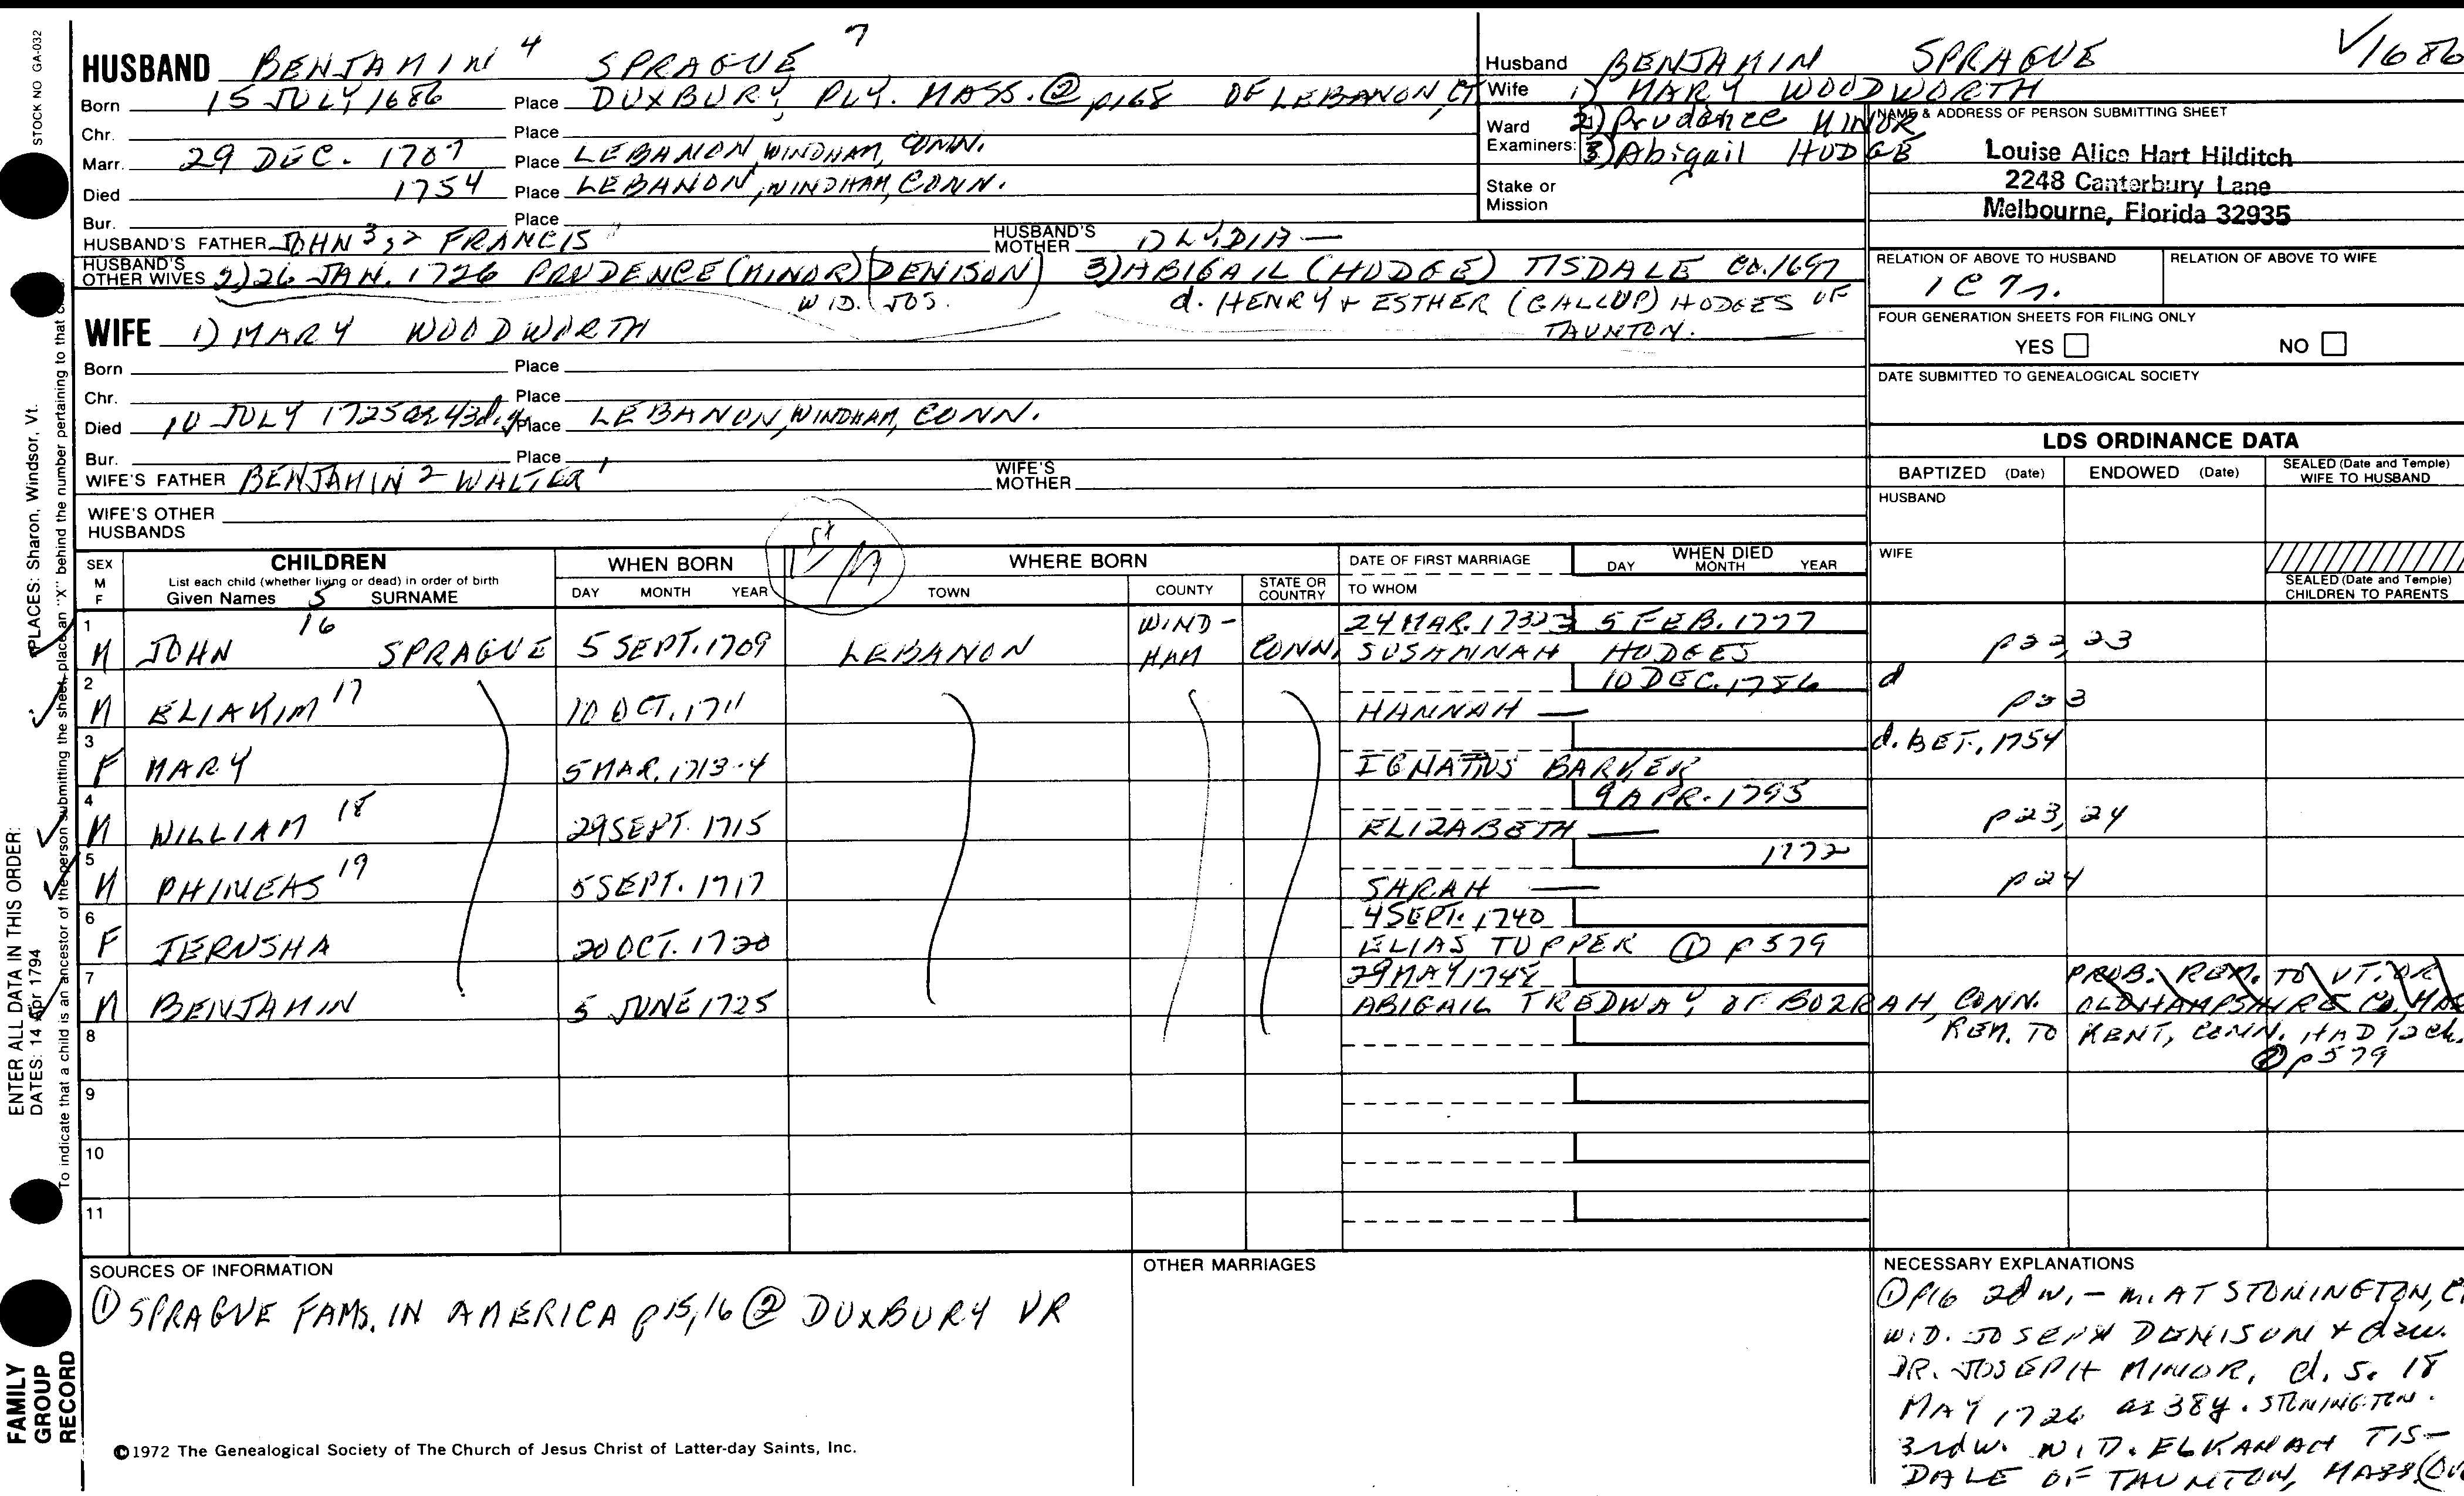 STOCK NO GA-032
HUSBAND BENJAMIN 4 SPRAGUE 7
Born 15 JULY 1686 Place DUXBURY, PLY. MASS. ② p168 OF LEBANON, CT
Chr. Place
Marr. 29 DEC. 1707 Place LEBANON, WINDHAM, CONN.
Died 1754 Place LEBANON, WINDHAM, CONN.
Bur. Place
HUSBAND'S FATHER JOHN 3, 2 FRANCIS 1 HUSBAND'S MOTHER 1) LYDIA —
HUSBAND'S OTHER WIVES 2) 26 JAN. 1726 PRUDENCE (MINOR) (DENISON) 3) ABIGAIL (HODGE) TISDALE CA. 1697
WID. JOS. d. HENRY + ESTHER (GALLUP) HODGES OF
TAUNTON.
Husband BENJAMIN SPRAGUE V1686
Wife 1) MARY WOODWORTH
2) Prudence MINOR
3) Abigail HODGE
Ward
Examiners:
Stake or
Mission
NAME & ADDRESS OF PERSON SUBMITTING SHEET
Louise Alice Hart Hilditch
2248 Canterbury Lane
Melbourne, Florida 32935
RELATION OF ABOVE TO HUSBAND RELATION OF ABOVE TO WIFE
1C7r.
FOUR GENERATION SHEETS FOR FILING ONLY
YES NO
DATE SUBMITTED TO GENEALOGICAL SOCIETY
WIFE 1) MARY WOODWORTH
Born Place
Chr. Place
Died 10 JULY 1725 ae 43d. y Place LEBANON, WINDHAM, CONN.
Bur. Place
WIFE'S FATHER BENJAMIN 2 WALTER 1 WIFE'S MOTHER
WIFE'S OTHER
HUSBANDS
LDS ORDINANCE DATA
BAPTIZED (Date) ENDOWED (Date) SEALED (Date and Temple) WIFE TO HUSBAND
HUSBAND
WIFE
SEALED (Date and Temple)
CHILDREN TO PARENTS
1st/m
SEX M F CHILDREN WHEN BORN WHERE BORN DATE OF FIRST MARRIAGE WHEN DIED
List each child (whether living or dead) in order of birth
Given Names 5 SURNAME DAY MONTH YEAR TOWN COUNTY STATE OR COUNTRY TO WHOM DAY MONTH YEAR
1 M JOHN 16 SPRAGUE 5 SEPT. 1709 LEBANON WIND-HAM CONN. 24 MAR. 1732-3 5 FEB. 1777
SUSANNAH HODGES p22, 23
2 M ELIAKIM 17 10 OCT. 1711 10 DEC. 1786 d
HANNAH — p23
3 F MARY 5 MAR. 1713-4 d. BET., 1754
IGNATIUS BARKER
4 M WILLIAM 18 29 SEPT. 1715 9 APR. 1795
ELIZABETH — p23, 24
5 M PHINEAS 19 5 SEPT. 1717 1772
SARAH — p24
6 F JERUSHA 20 OCT. 1720 4 SEPT. 1740
ELIAS TUPPER ① p579
7 M BENJAMIN 5 JUNE 1725 29 MAY 1748
ABIGAIL TREDWAY, OF BOZRAH, CONN.
PROB. REM. TO VT. OR
OLD HAMPSHIRE CO. MAS
REM. TO KENT, CONN. HAD 12 ch.
② p579
8
9
10
11
SOURCES OF INFORMATION
① SPRAGUE FAMS. IN AMERICA p15, 16 ② DUXBURY VR
OTHER MARRIAGES
NECESSARY EXPLANATIONS
① P16 2d w. — m. AT STONINGTON, CT
WID. JOSEPH DENISON + dau.
DR. JOSEPH MINOR, d. S. 18
MAY 1726 ae 38y. STONINGTON.
3rd w. WID. ELKANAH TIS-
DALE OF TAUNTON, MASS.
©1972 The Genealogical Society of The Church of Jesus Christ of Latter-day Saints, Inc.
FAMILY
GROUP
RECORD
ENTER ALL DATA IN THIS ORDER:
DATES: 14 Apr 1794
PLACES: Sharon, Windsor, Vt.
To indicate that a child is an ancestor of the person submitting the sheet, place an "X" behind the number pertaining to that